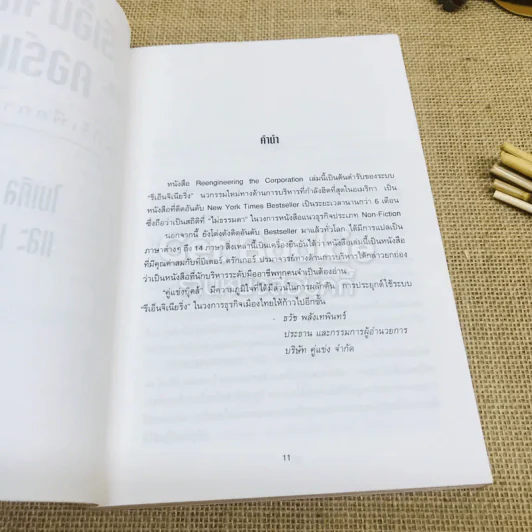 คำนำ
หนังสือ Reengineering the Corporation เล่มนี้เป็นต้นตำรับของระบบ
"รีเอ็นจิเนียริ่ง" นวกรรมใหม่ทางด้านการบริหารที่กำลังฮิตที่สุดในอเมริกา เป็น
หนังสือที่ติดอันดับ New York Times Bestseller เป็นระยะเวลานานกว่า 6 เดือน
ซึ่งถือว่าเป็นสถิติที่ "ไม่ธรรมดา" ในวงการหนังสือแนวธุรกิจประเภท Non-Fiction
นอกจากนี้ ยังโด่งดังติดอันดับ Bestseller มาแล้วทั่วโลก ได้มีการแปลเป็น
ภาษาต่างๆ ถึง 14 ภาษา สิ่งเหล่านี้เป็นเครื่องยืนยันได้ว่า หนังสือเล่มนี้เป็นหนังสือ
ที่มีคุณค่าสมกับที่ปีเตอร์ ดรักเกอร์ ปรมาจารย์ทางด้านการบริหารได้กล่าวยกย่อง
ว่าเป็นหนังสือที่นักบริหารระดับมืออาชีพทุกคนจำเป็นต้องอ่าน
"คู่แข่งบุ๊คส์" มีความภูมิใจที่ได้มีส่วนในการผลักดัน การประยุกต์ใช้ระบบ
"รีเอ็นจิเนียริ่ง" ในวงการธุรกิจเมืองไทยให้ก้าวไปอีกขั้น
ธวัช พลังเทพินทร์
ประธาน และกรรมการผู้อำนวยการ
บริษัท คู่แข่ง จำกัด
11